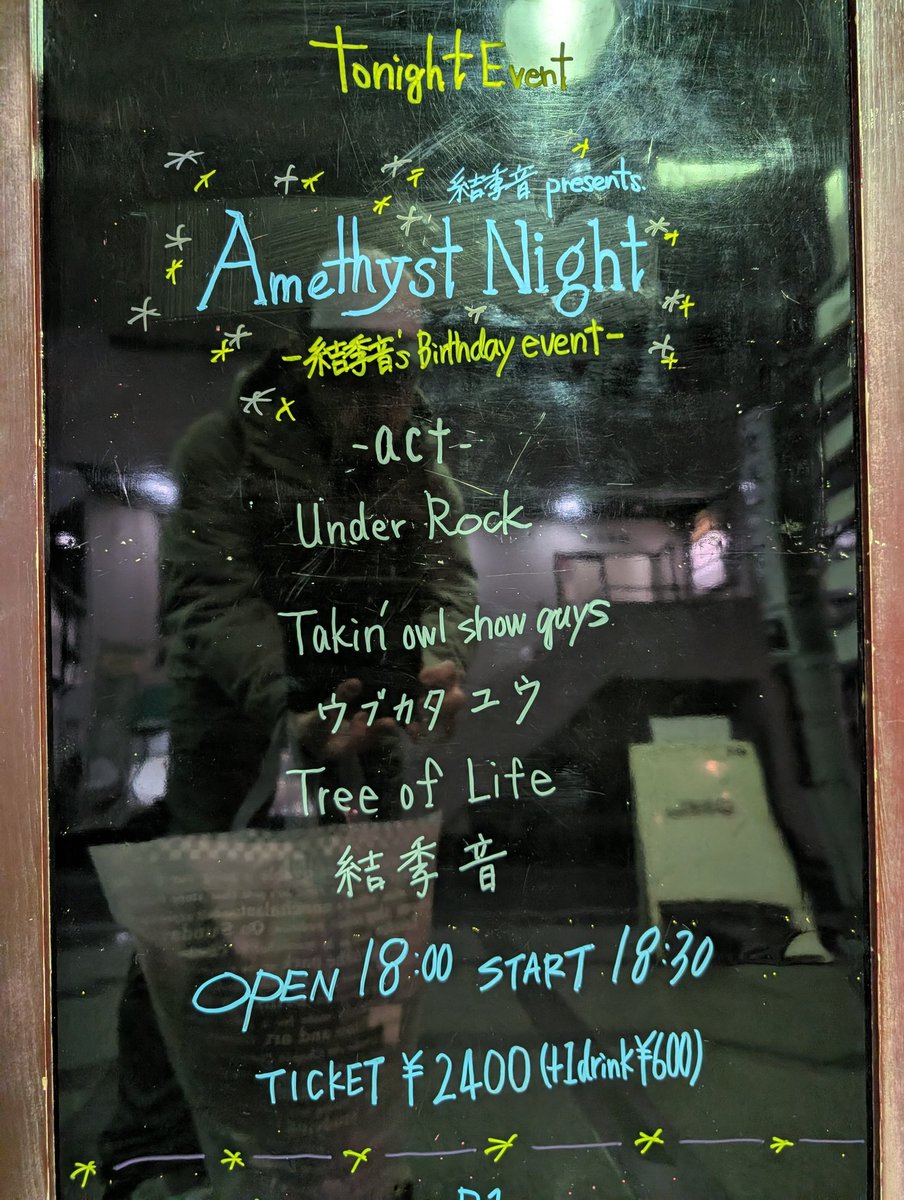 Tonight Event
結季音 presents.
Amethyst Night
-結季音's Birthday event-
-act-
Under Rock
Takin' owl show guys
ウブカタ ユウ
Tree of Life
結季音
OPEN 18:00 START 18:30
TICKET ¥2400 (+1drink¥600)